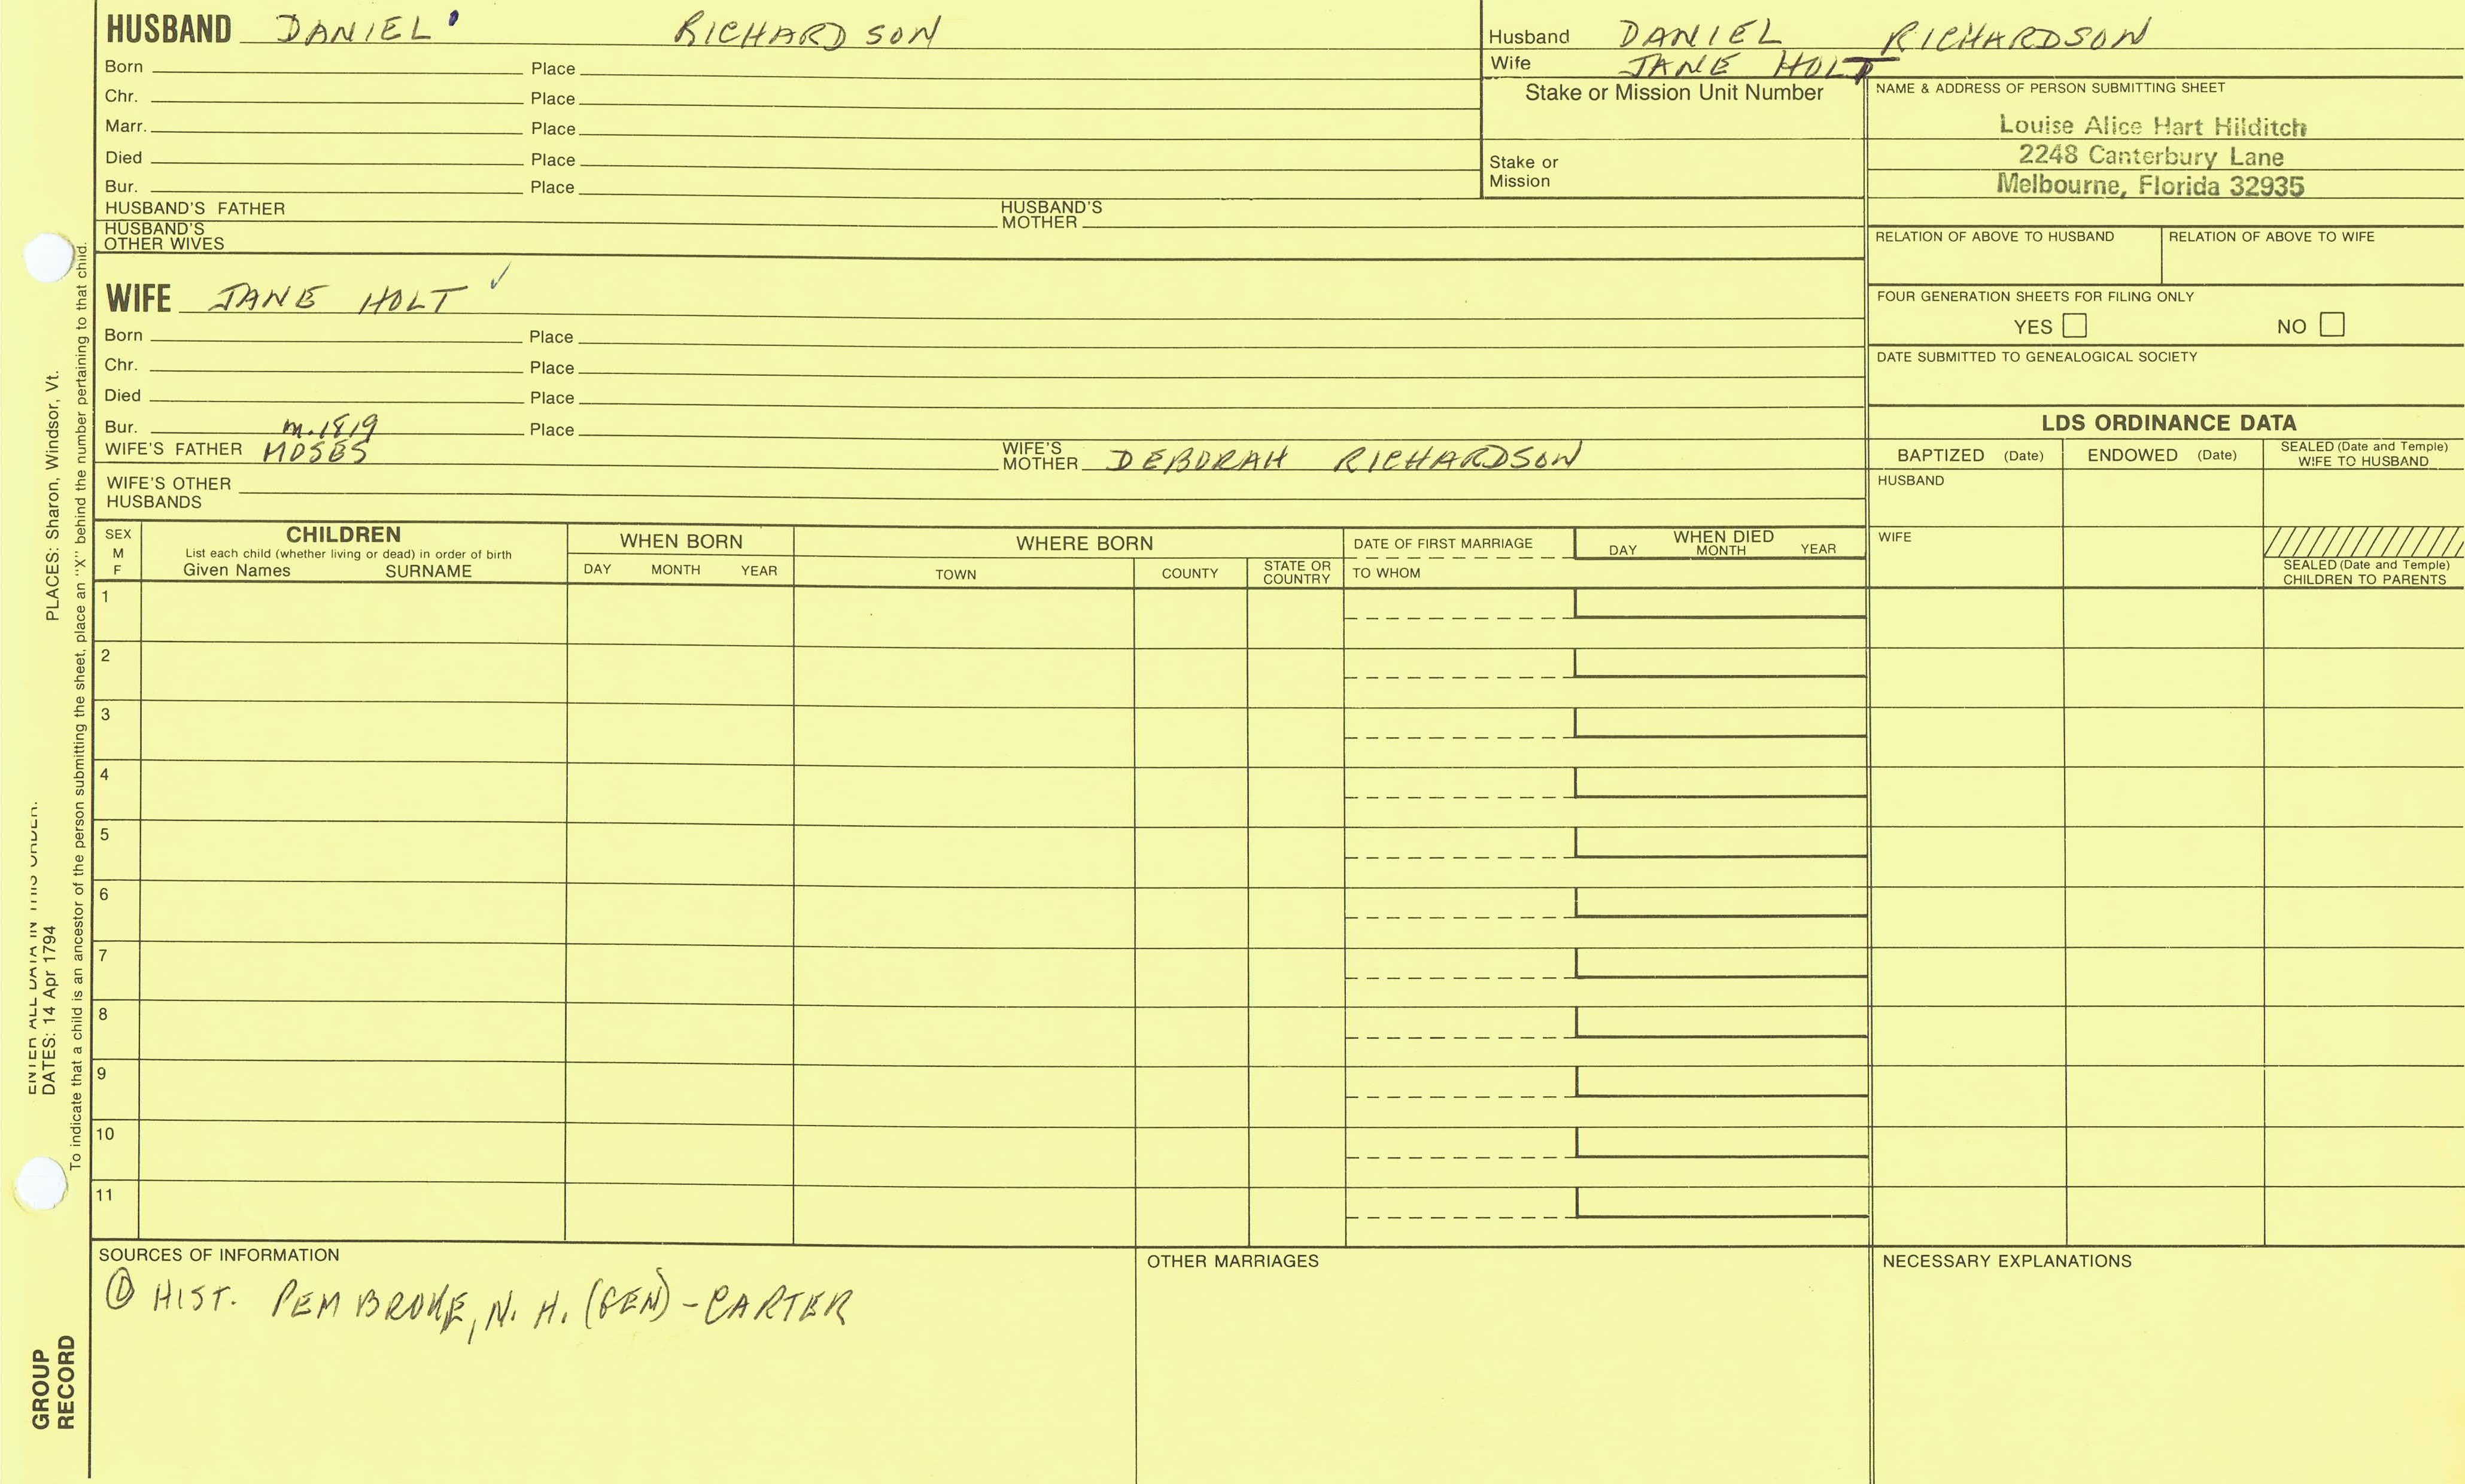 HUSBAND DANIEL RICHARDSON
Born Place
Chr. Place
Marr. Place
Died Place
Bur. Place
HUSBAND'S FATHER HUSBAND'S MOTHER
HUSBAND'S OTHER WIVES
Husband DANIEL RICHARDSON
Wife JANE HOLT
Stake or Mission Unit Number
Stake or Mission
NAME & ADDRESS OF PERSON SUBMITTING SHEET
Louise Alice Hart Hilditch
2248 Canterbury Lane
Melbourne, Florida 32935
RELATION OF ABOVE TO HUSBAND RELATION OF ABOVE TO WIFE
FOUR GENERATION SHEETS FOR FILING ONLY
YES NO
DATE SUBMITTED TO GENEALOGICAL SOCIETY
WIFE JANE HOLT
Born Place
Chr. Place
Died Place
Bur. m. 1819 Place
WIFE'S FATHER MOSES WIFE'S MOTHER DEBORAH RICHARDSON
WIFE'S OTHER HUSBANDS
LDS ORDINANCE DATA
BAPTIZED (Date) ENDOWED (Date) SEALED (Date and Temple) WIFE TO HUSBAND
HUSBAND
WIFE
SEALED (Date and Temple) CHILDREN TO PARENTS
SEX M F
CHILDREN
List each child (whether living or dead) in order of birth
Given Names SURNAME
WHEN BORN
DAY MONTH YEAR
WHERE BORN
TOWN COUNTY STATE OR COUNTRY
DATE OF FIRST MARRIAGE
TO WHOM
WHEN DIED
DAY MONTH YEAR
1
2
3
4
5
6
7
8
9
10
11
SOURCES OF INFORMATION
① HIST. PEMBROKE, N. H. (GEN) - CARTER
OTHER MARRIAGES
NECESSARY EXPLANATIONS
ENTER ALL DATA IN THIS ORDER:
DATES: 14 Apr 1794 PLACES: Sharon, Windsor, Vt.
To indicate that a child is an ancestor of the person submitting the sheet, place an "X" behind the number pertaining to that child.
GROUP
RECORD